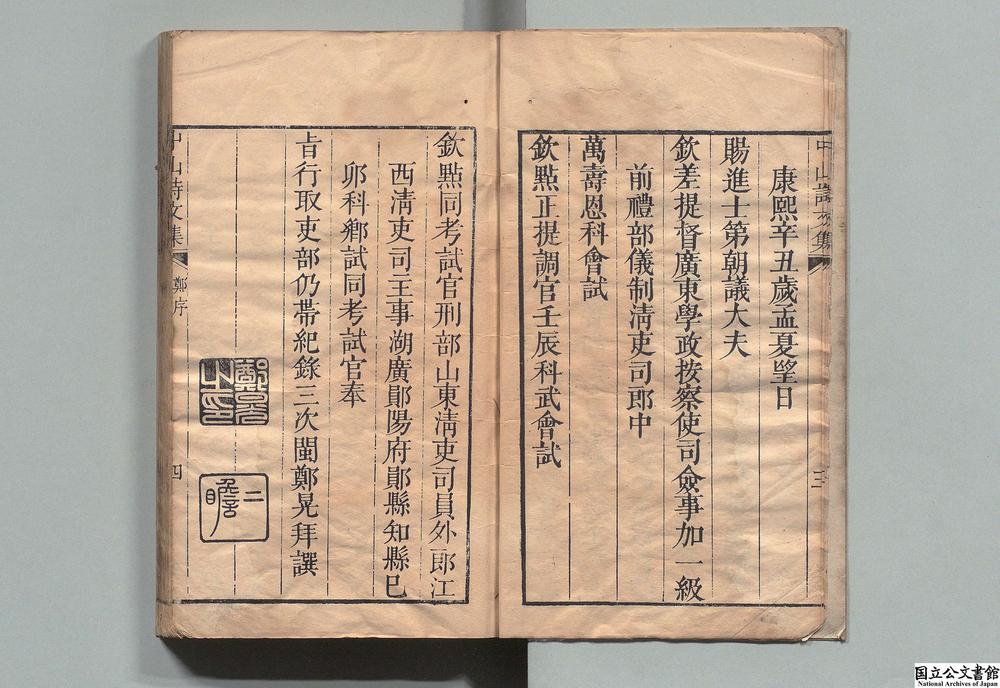 中山詩文集
三
康熙辛丑歲孟夏望日
賜進士第朝議大夫
欽差提督廣東學政按察使司僉事加一級
前禮部儀制清吏司郎中
萬壽恩科會試
欽點正提調官壬辰科武會試
欽點同考試官刑部山東清吏司員外郎江
西清吏司主事湖廣鄖陽府鄖縣知縣己
卯科鄉試同考試官奉
旨行取吏部仍帶紀錄三次閩鄭晃拜譔
鄭晃之印
二瞻
中山詩文集
鄭序
四
国立公文書館
National Archives of Japan